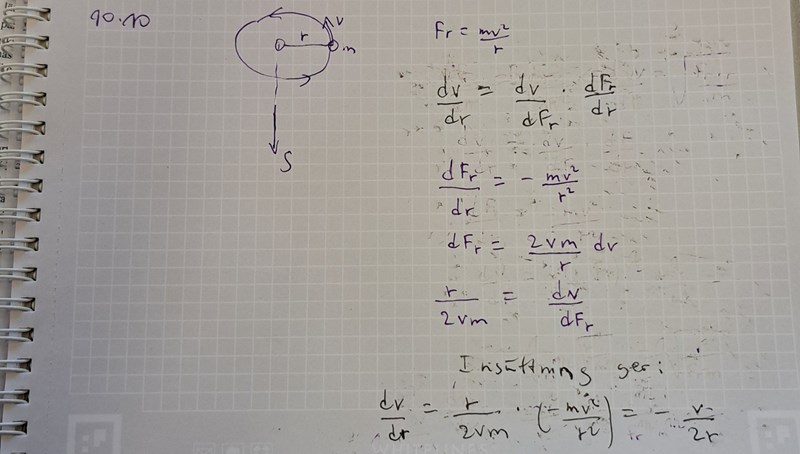 10.10
v
r
m
S
Fr = mv²/r
dv/dr = dv/dFr · dFr/dr
dFr/dr = - mv²/r²
dFr = 2vm/r dv
r/2vm = dv/dFr
Insättning ger:
dv/dr = r/2vm · (-mv²/r²) = - v/2r